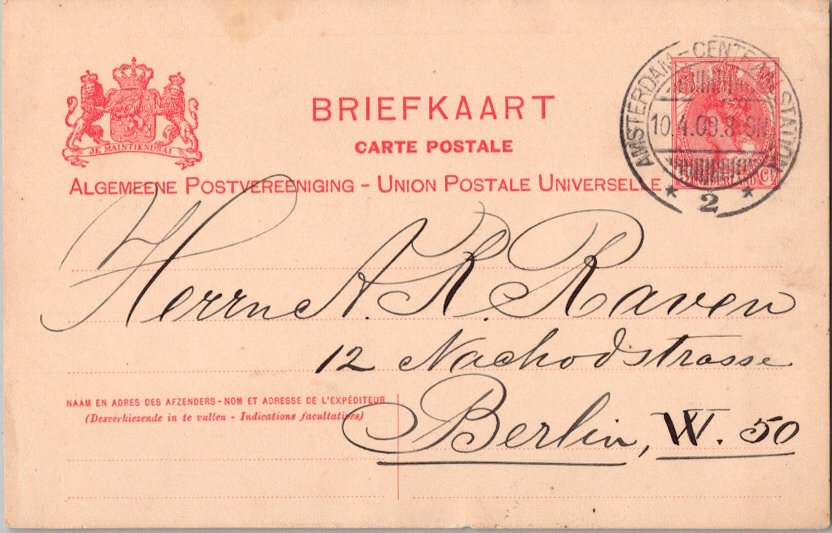 JE MAINTIENDRAI
BRIEFKAART
CARTE POSTALE
ALGEMEENE POSTVEREENIGING - UNION POSTALE UNIVERSELLE
AMSTERDAM-CENTRAAL STATION
10.4.09.8
2
Herrn A. R. Raven
12 Nachodstrasse
NAAM EN ADRES DES AFZENDERS - NOM ET ADRESSE DE L'EXPÉDITEUR
(Desverkiezende in te vullen - Indications facultatives)
Berlin, W. 50